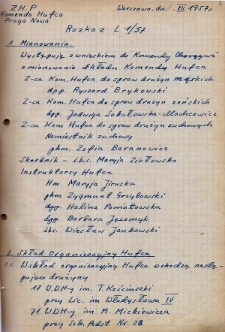 Z.H.P
Komenda Hufca
Praga Nowa
Warszawa dn. XII 1957 r
Rozkaz L 1/57
1. Mianowania
Występuję z wnioskiem do Komendy Chorągwi
o mianowanie składu Komendy Hufca
Z-ca Kom. Hufca do spraw drużyn męskich
dpgp. Ryszard Brykowski
Z-ca Kom. Hufca do spraw drużyn żeńskich
dpgp. Jadwiga Sokołowska
Z-ca Kom. Hufca do spraw drużyn zuchowych
Namiestnik zuchowy
phm. Zofia Baranowicz
Skarbnik - Maryja Ziołowska
Instruktorzy Hufca
Hm Maryja Jiruska
phm Zygmunt
dpgp. Halina
dpgp. Barbara
Wiesław Jankowski
2. Skład Organizacyjny Hufca
W skład organizacyjny Hufca wchodzą nastę-
pujące drużyny
17 W.D.H-y im. T. Kościuszki
przy Lic. im Władysława IV
71 W.D.H-y im A. Mickiewicza
przy Szk. Podst Nr. 28